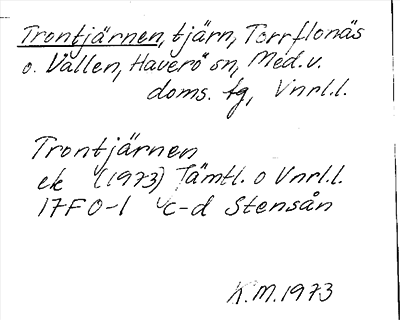 Trontjärnen, tjärn, Torrflonäs
o. Vallen, Haverö sn, Med. v.
doms. fg, Vnrl.l.
Trontjärnen
ek (1973) Jämtl. o Vnrl.l.
17F 0-1 c-d Stensån
K.M. 1973